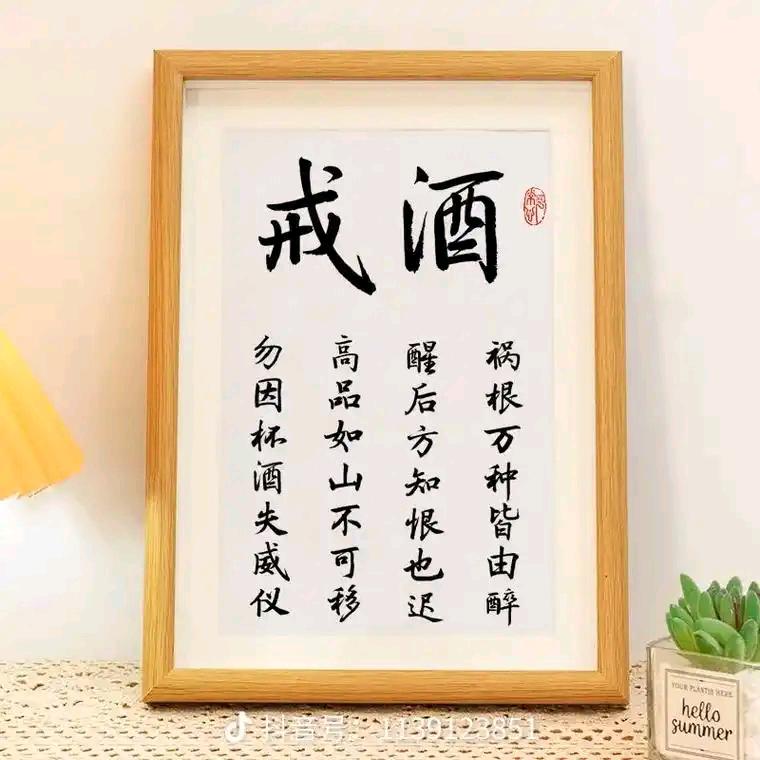 戒酒
祸根万种皆由醉
醒后方知恨也迟
高品如山不可移
勿因杯酒失威仪
YOUR PLANT IS HERE
hello
summer
抖音号：1139123851